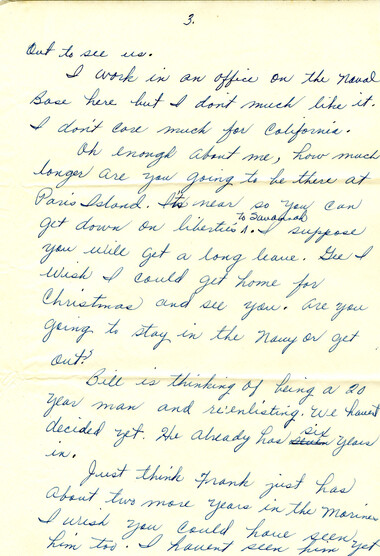 3.
Out to see us.
I work in an office on the Naval
Base here but I don't much like it.
I don't care much for California.
Oh enough about me, how much
longer are you going to be there at
Paris Island. It's near so you can
get down on liberties to Savannah. I suppose
you will get a long leave. Gee I
wish I could get home for
Christmas and see you. Are you
going to stay in the Navy or get
out?
Bill is thinking of being a 20
year man and re'enlisting. We havent
decided yet. He already has six years
in.
Just think Frank just has
about two more years in the Marines
I wish you could have seen
him too. I havent seen him yet